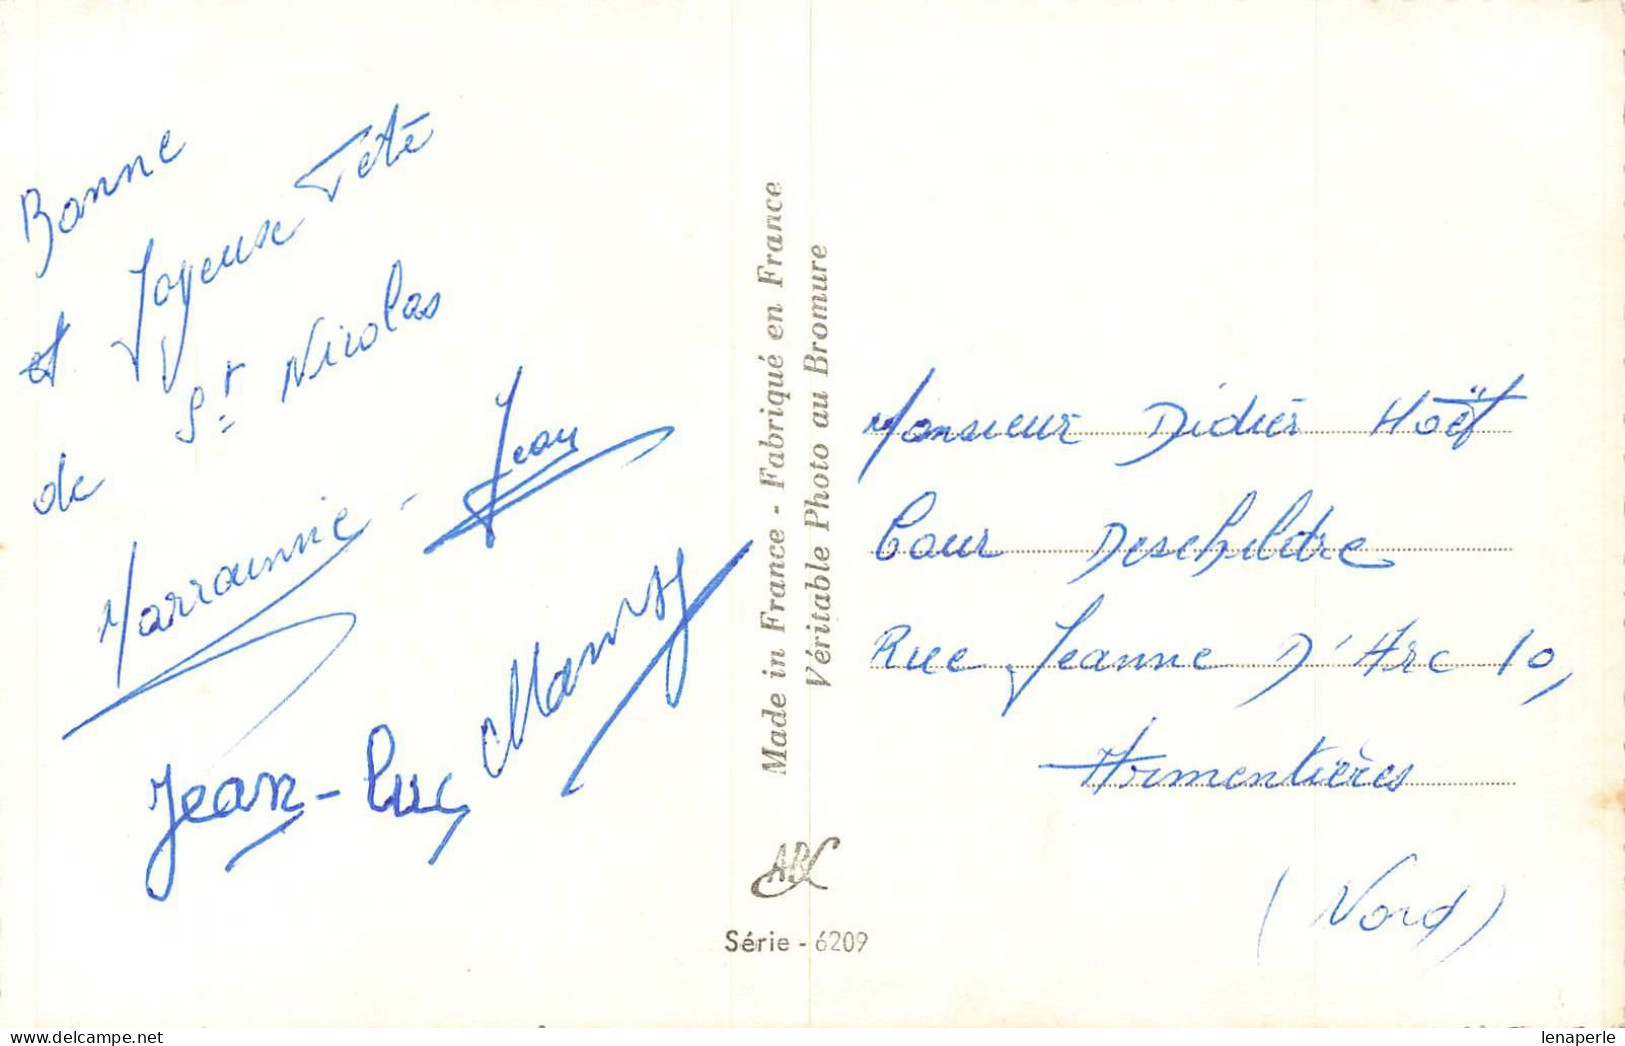 Bonne
et Joyeuse Fête
de St Nicolas
Marrainnie - Jean
Jean-Luc Manny
Made in France - Fabriqué en France
Véritable Photo au Bromure
ABC
Série - 6209
Monsieur Didier Hoët
Cour Deschildre
Rue Jeanne D'Arc 10,
Armentières
(Nord)
delcampe.net
lenaperle